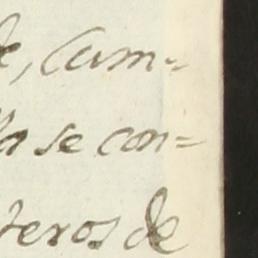 e, Cam-
a se con-
teros de